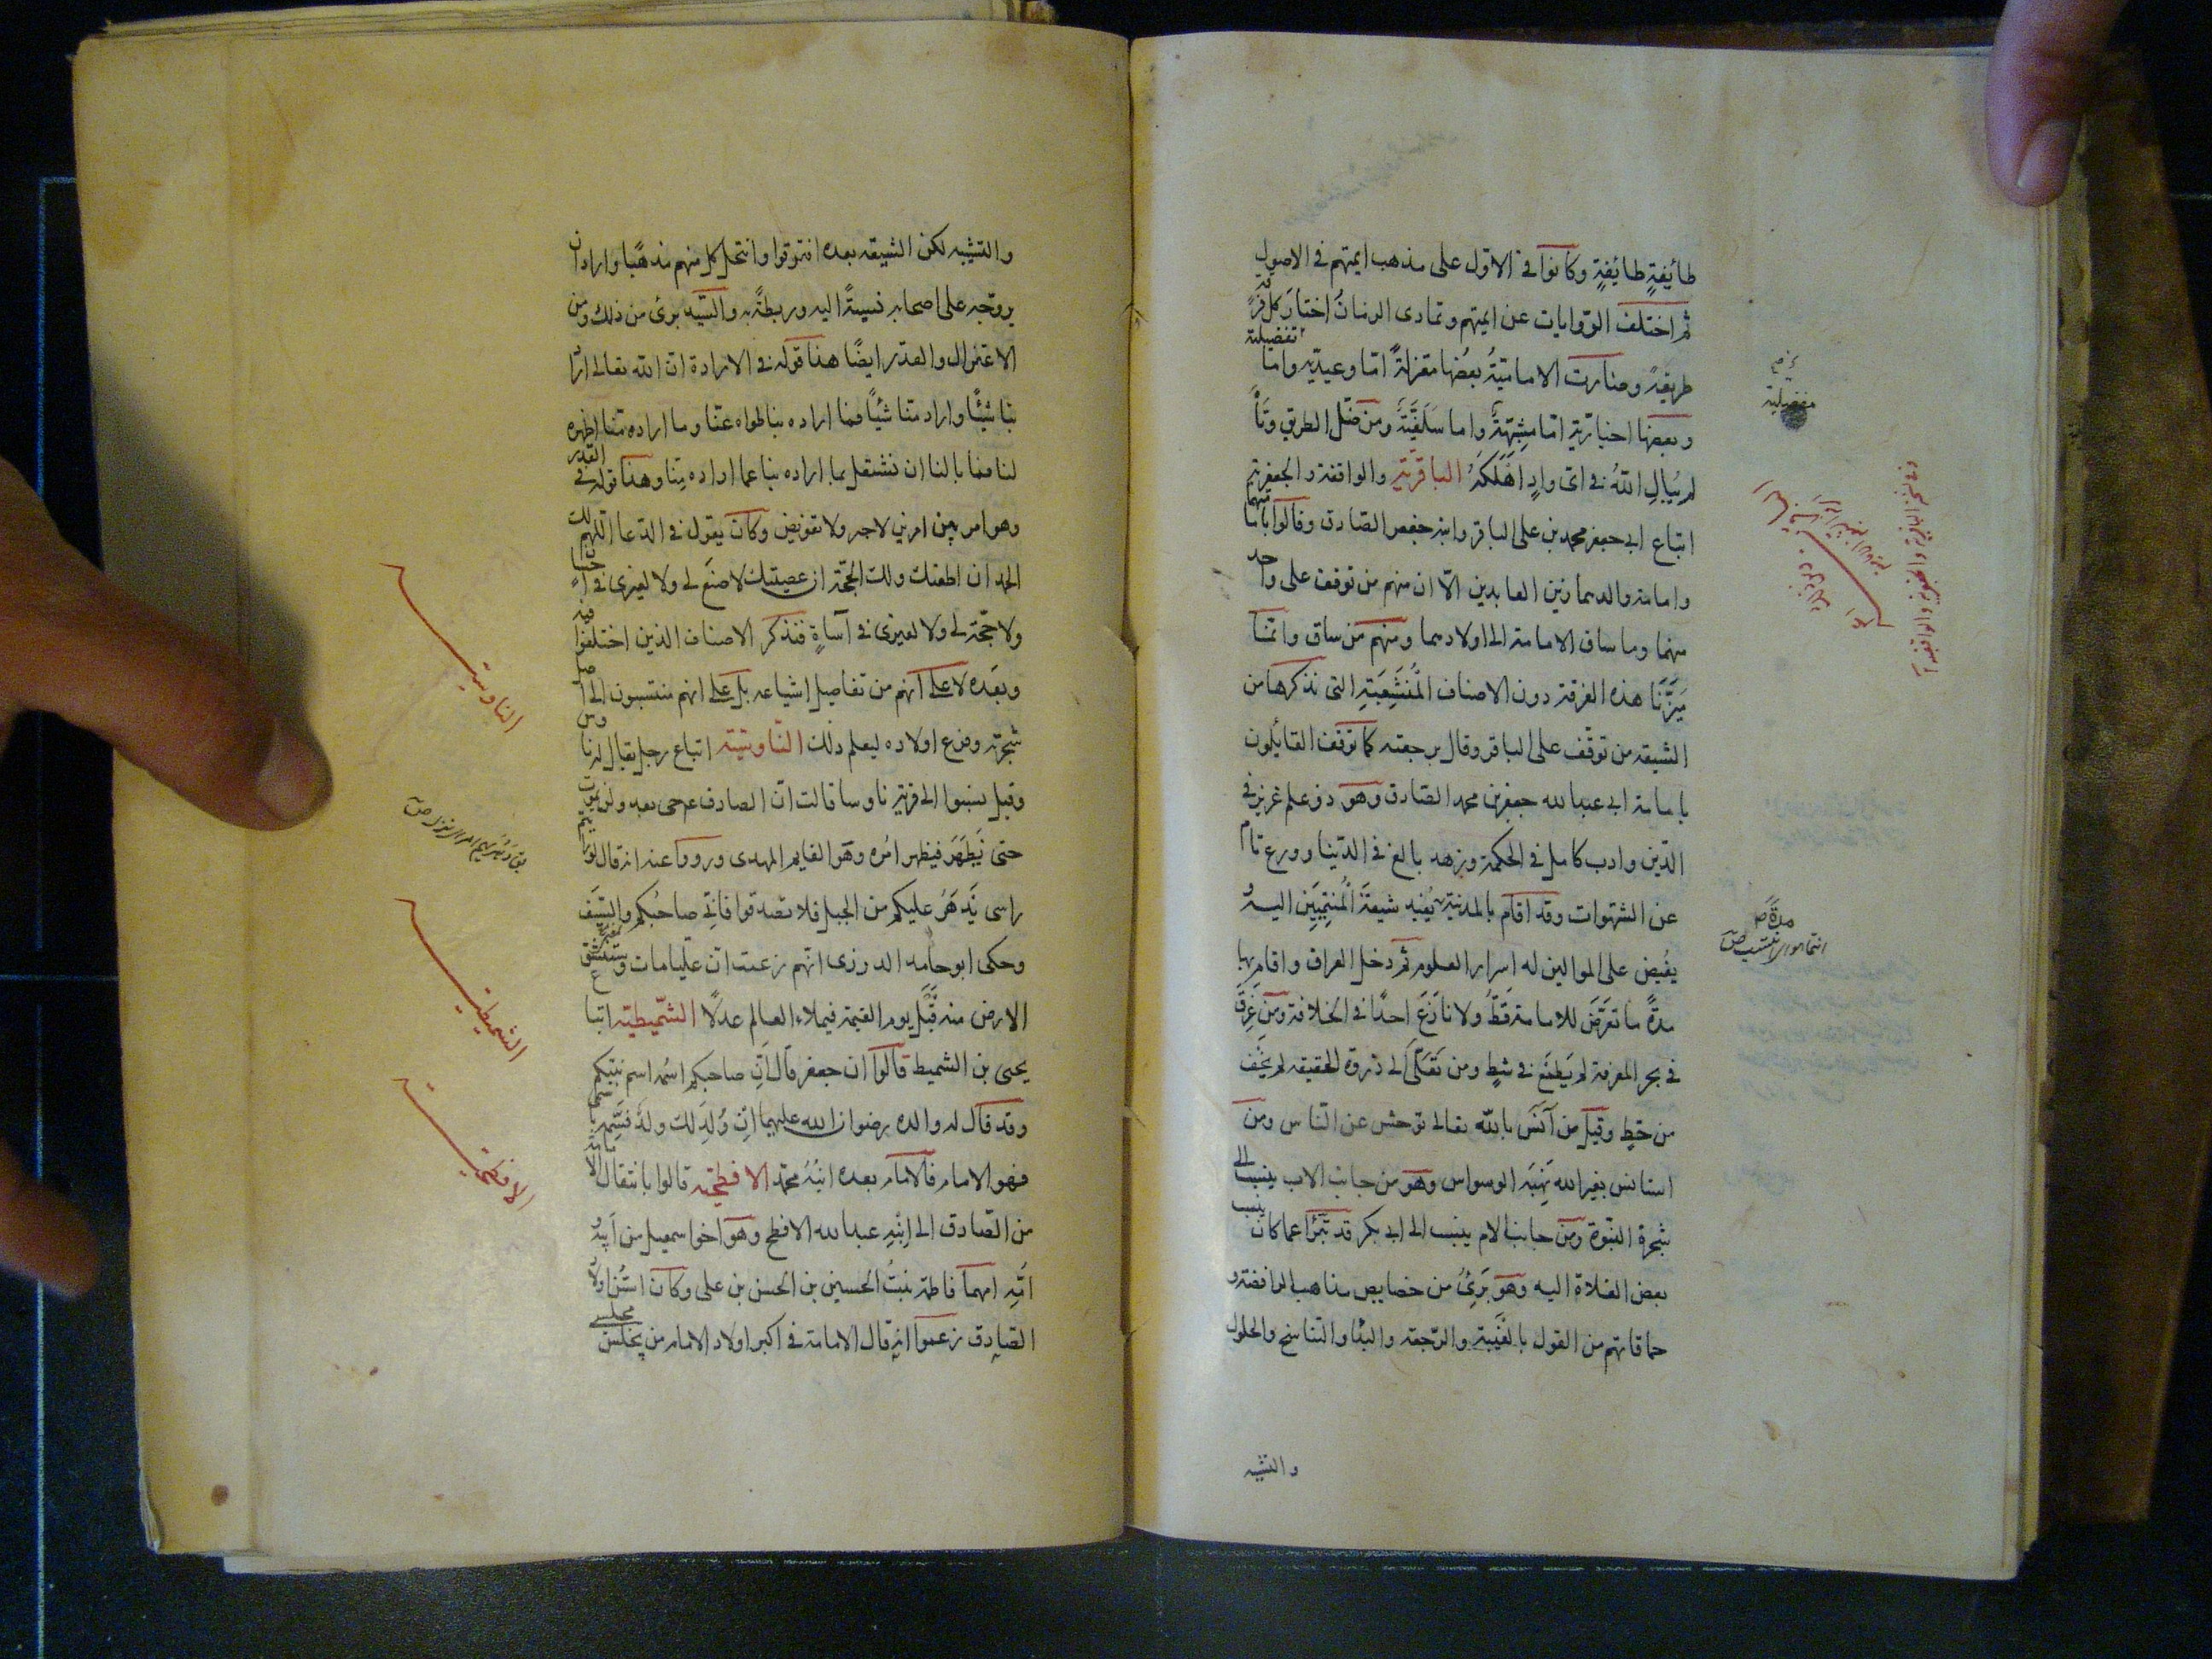 طائفةٍ طائفةٍ وكانوا في الاول على مذهب ايمتهم في الاصول
ثم اختلف الروايات عن ايمتهم وتمادى الزمانُ اختار كل فرقة
طريقة وصارت الامامية بعضها معتزلةً امّا وعيدية واما تفضيلية
وبعضها اخبارية امّا مشبّهةٌ واما سَلَفيَّةً ومن ضل الطريق وتاه
لم يُبالِ اللهُ في اىّ وادٍ اَهْلَكَهُ الباقرية والواقفة والجعفرية
اتباع ابى جعفر محمد بن على الباقر وابنه جعفر الصادق وقالوا بامامتهما
وامامة والدهما زين العابدين الّا ان منهم من توقف على واحد
منهما وما ساق الامامة الى اولادهما ومنهم من ساق وانما
مَيَّزْنَا هذه الفرقة دون الاصناف المُتَشَعِّبَةِ التى نذكرها من
الشيعة من توقّف على الباقر وقال برجعته كما توقف القائلون
بامامة ابى عبد الله جعفر بن محمد الصادق وهو ذو علم غزير في
الدّين وادب كامل في الحكمة وزهد بالغ في الدّنيا وورع تام
عن الشهوات وقد اقام بالمدينة يُفيد شيعة المُنتمِيَين اليه
يفيض على الموالين له اسرار العلوم ثم دخل العراق واقام بها
مدةً ما تعرَّضَ للامامة قَطُّ ولا نازَعَ احدًا في الخلافة ومن غَرِقَ
في بحر المعرفة لم يَطمَعْ في شطٍ ومن تَعَلّى الى ذروة الحقيقة لم يَخَف
من حطٍ وقيل من آنَسَ بالله تعالى توحش عن الناس ومن
استانس بغير الله نهبَهُ الوسواس وهو من جانب الاب ينسب الى
شجرة النبّوة ومن جانب الام ينسب الى ابى بكر قد تبرّأ عما كان ينسب
بعض الغلاة اليه وهو بَرِئٌ من خصايص مذاهب الرافضة و
حماقاتهم من القول بالغَيْبة والرّجعة والبدا والتناسخ والحلول
والتشبيه
مدةً
والتشبيه لكن الشيعة بعده افترقوا وانتحل كل منهم مذهبًا واراد ان
يروّجه على اصحابه نسبةً اليه وربطةً به والسّيد برئ من ذلك ومن
الاعتزال والقدر ايضًا هذا قوله في الارادة ان الله تعالى اراد
بنا شيئًا واراد منّا شيئًا فما اراده بنا طواه عنّا وما اراده منّا اظهره
لنا فما بالنا ان نشتغل بما اراده بنا عما اراده منّا وهذا قوله في القدر
وهو امر بين امرين لا جبر ولا تفويض وكان يقول في الدّعا اللهم لك
الحمد ان اطعتك ولك الحجّة ان عصيتك لا صنع لى ولا لغيرى في احسان
ولا حجّة لى ولا لغيرى في آساةٍ فنذكر الاصناف الذين اختلفوا فيه
وبعده لا على انهم من تفاصيل اشياعه بل على انهم منتسبون الى اصل
شجرته وفرع اولاده ليعلم ذلك الناوسية اتباع رجل يقال له ناوس
وقيل نسبوا الى قرية ناوسا قالت انّ الصادق ع حى بعد ولن يموت
حتى يَظهَرَ فيظهر امُره وهو القايم المهدى ورووا عنه انه قال لو رايتم
راسى يَدَهْدَهُ عليكم من الجبل فلا تصدقوا فانّى صاحبُكم صاحب السّيف
وحكى ابو حامد الزوزنى انهم زعمت انّ عليّا مات وستنشق
الارض عنه قَبْلَ يوم القيمة فيملاء العالم عدلًا الشميطية اتباع
يحيى بن الشميط قالوا ان جعفر قال اَنّ صاحبكم اسمُه اسم نبيّكم
وقد قال له والده رضوان الله عليهما اِن وُلِدَ لك ولدٌ فسَمّه باسمى
فهو الامام فالامام بعده ابنُهُ محمّد الافطحيّه قالوا بانتقال الامامة
من الصّادق الى اِبْنِهِ عبد الله الافطح وهو اخو اسمعيل من ابيه و
اُمّه امهما فاطمة بنتُ الحسين بن الحسن بن على وكان اسَنّ اولاد
الصادق زعموا انه قال الامامة في اكبر اولاد الامام من يجلس مجلسى
الناوسية
الشميطية
الافطحية